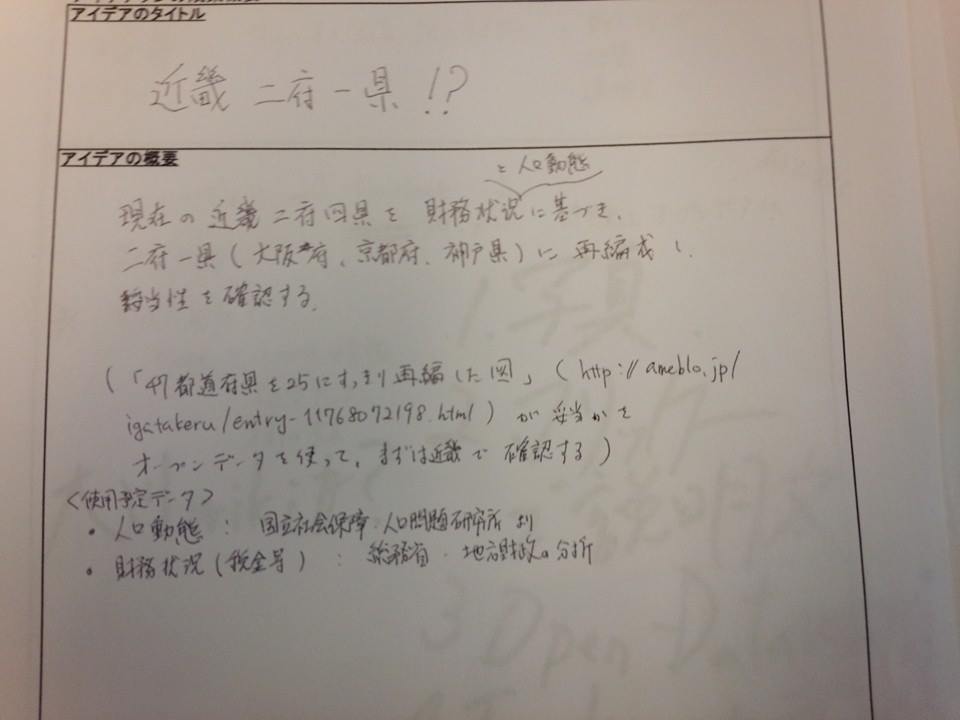 アイデアのタイトル
近畿 二府一県!?
アイデアの概要
と人口動態
現在の近畿二府四県を財務状況に基づき、
二府一県(大阪府、京都府、神戸県)に再編成し、
妥当性を確認する。
(「47都道府県を25にすっきり再編した図」(http://ameblo.jp/
igatakeru/entry-11768072198.html)が妥当かを
オープンデータを使って、まずは近畿で確認する)
<使用予定データ>
・人口動態: 国立社会保障・人口問題研究所より
・財務状況(税金等): 総務省・地方財政の分析
1.写真
説明
3 Open Data